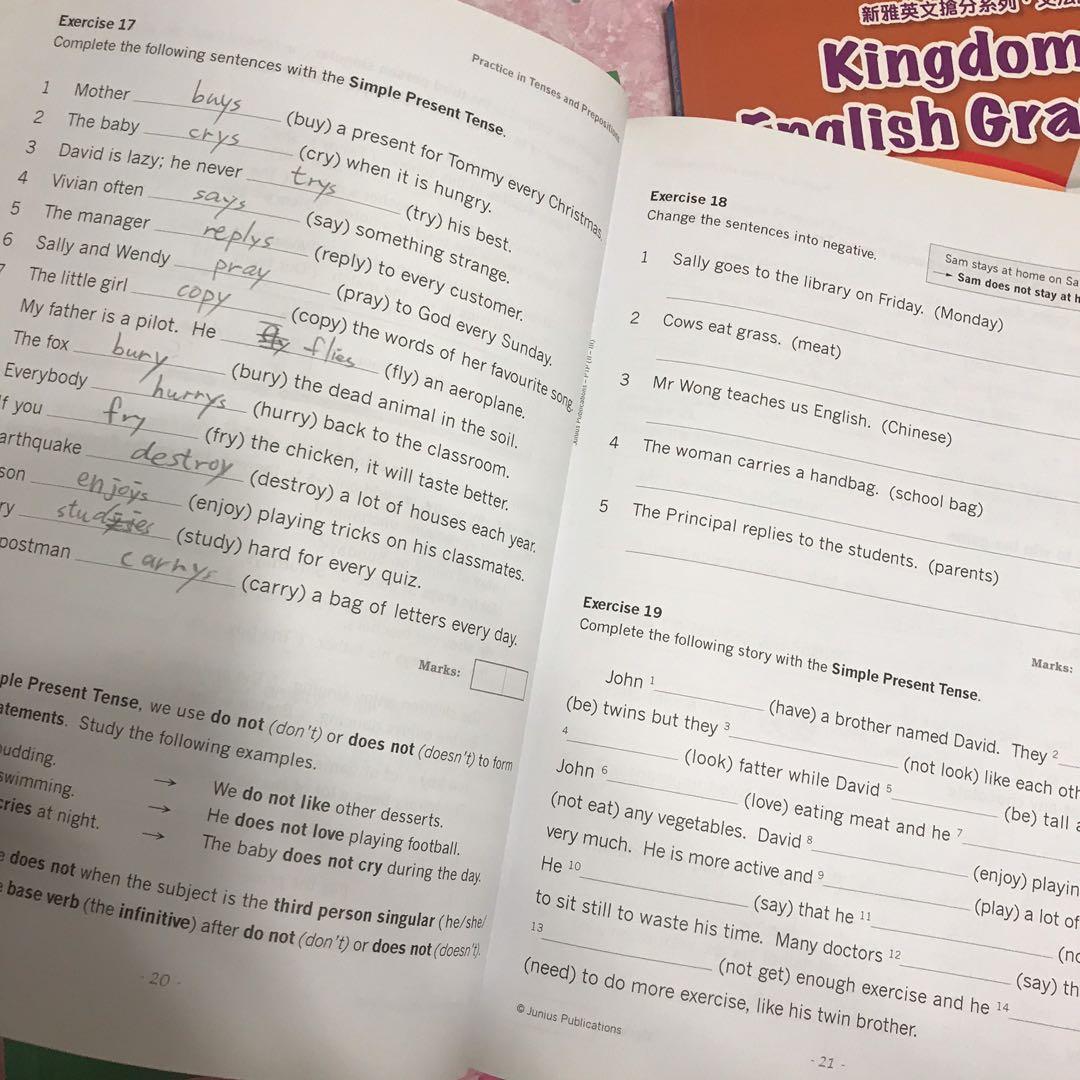 新雅英文搶分系列
Kingdom
English Gra
Practice in Tenses and Prepositions
Exercise 17
Complete the following sentences with the Simple Present Tense.
1 Mother buys (buy) a present for Tommy every Christmas.
2 The baby crys (cry) when it is hungry.
3 David is lazy; he never trys (try) his best.
4 Vivian often says (say) something strange.
5 The manager replys (reply) to every customer.
6 Sally and Wendy pray (pray) to God every Sunday.
7 The little girl copy (copy) the words of her favourite song.
My father is a pilot. He flies (fly) an aeroplane.
The fox bury (bury) the dead animal in the soil.
Everybody hurrys (hurry) back to the classroom.
f you fry (fry) the chicken, it will taste better.
arthquake destroy (destroy) a lot of houses each year.
son enjoys (enjoy) playing tricks on his classmates.
ry studies (study) hard for every quiz.
postman carrys (carry) a bag of letters every day.
Marks:
ple Present Tense, we use do not (don't) or does not (doesn't) to form
atements. Study the following examples.
pudding. → We do not like other desserts.
swimming. → He does not love playing football.
cries at night. → The baby does not cry during the day.
e does not when the subject is the third person singular (he/she/
e base verb (the infinitive) after do not (don't) or does not (doesn't).
- 20 -
Junius Publications – PTP (II – III)
Exercise 18
Change the sentences into negative.
Sam stays at home on Sa
→ Sam does not stay at h
1 Sally goes to the library on Friday. (Monday)
2 Cows eat grass. (meat)
3 Mr Wong teaches us English. (Chinese)
4 The woman carries a handbag. (school bag)
5 The Principal replies to the students. (parents)
Marks:
Exercise 19
Complete the following story with the Simple Present Tense.
John 1 (have) a brother named David. They 2
(be) twins but they 3 (not look) like each oth
4 (look) fatter while David 5 (be) tall a
John 6 (love) eating meat and he 7
(not eat) any vegetables. David 8 (enjoy) playin
very much. He is more active and 9 (play) a lot of
He 10 (say) that he 11 (no
to sit still to waste his time. Many doctors 12 (say) th
13 (not get) enough exercise and he 14
(need) to do more exercise, like his twin brother.
© Junius Publications
- 21 -